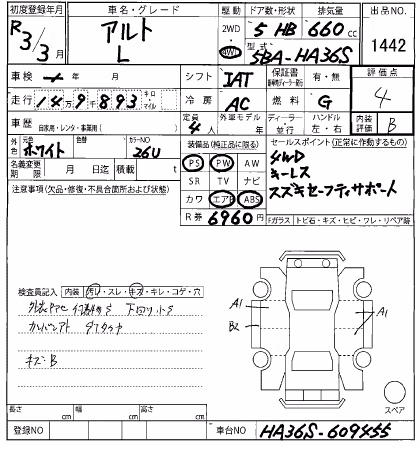 初度登録年月 車名・グレード 駆動 ドア数/形状 排気量 出品NO.
R3/3月 アルト L 2WD 4WD 5 HB 660 cc 1442
型式 5BA-HA36S
車検 年 月 シフト IAT 保証書 有・無 評価点 4
走行 14万9千893 キロ・マイル 冷房 AC 燃料 G
車歴 自家用・レンタ・事業用( ) 定員 4人 外車モデル 年 ディーラー・並行 ハンドル 左・右 内装評価 B
外色 元色 ホワイト 色替 カラーNO 26U
名義変更期限 月 日迄 積載 t
装備品(純正品に限る)
PS PW AW
SR TV ナビ
カワ エアB ABS
R券 6960円
セールスポイント(正常に作動するもの)
4WD
キーレス
スズキセーフティサポート
Fガラス トビ石・キズ・ヒビ・ワレ・リペア跡
注意事項(欠品・修復・不具合箇所および状態)
検査員記入 内装 汚れ・スレ・キズ・キレ・コゲ・穴
キズ:B
A1
B2
A1
スペア
長さ cm 幅 cm 高さ cm
登録NO 車台NO HA36S-609455